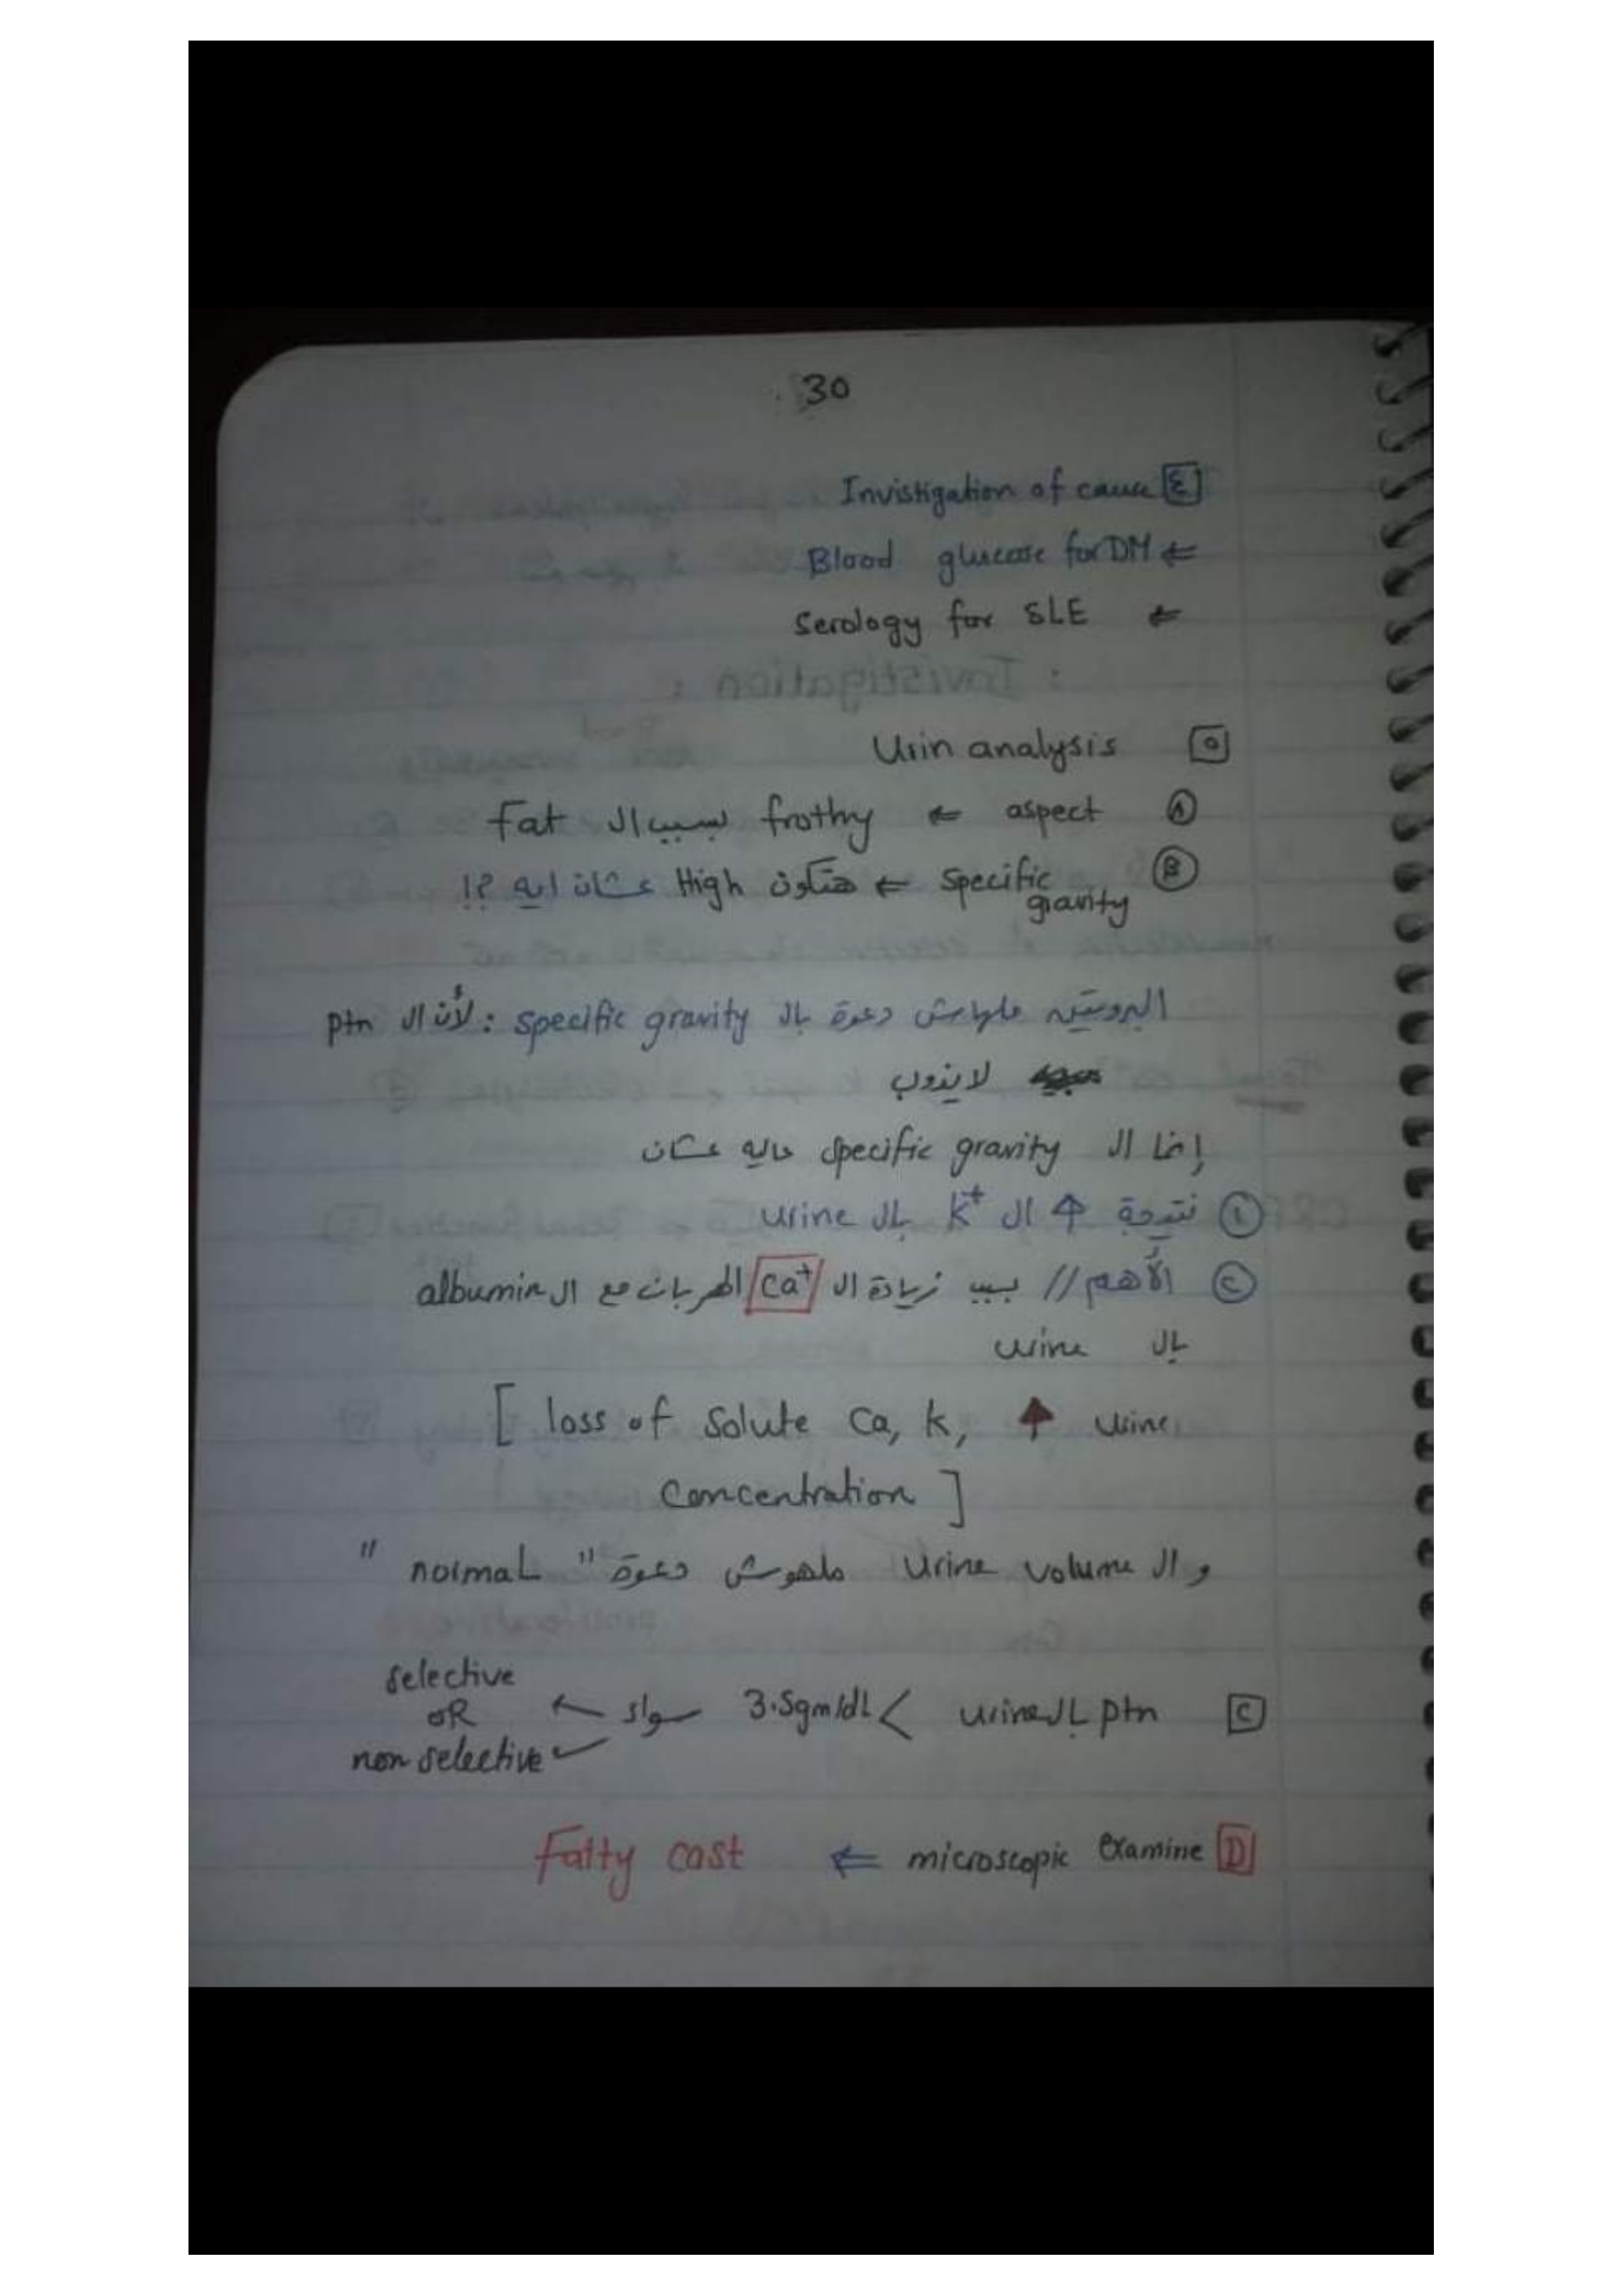 30
[٤] Invistigation of cause
⇐ Blood glucose for DM
⇐ Serology for SLE
[٥] Urin analysis
(A) aspect ⇐ frothy بسبب ال Fat
(B) Specific gravity ⇐ هتكون High عشان ايه ?!
البروتين ملهاش دعوة بال specific gravity : لأن ال ptn
لا يذوب
إنما ال specific gravity عاليه عشان
(1) نتيجة ↑ ال K+ بال urine
(٢) الأهم // بسبب زيادة ال Ca+ الهربان مع ال albumin
بال urine
[ loss of Solute Ca, K, ↑ urine
Concentration ]
و ال urine volume ملهوش دعوة " normal "
[C] ptn بال urine < 3.5gm/dL سواء ← selective
OR
non selective
[D] microscopic examine ⇐ Fatty cast